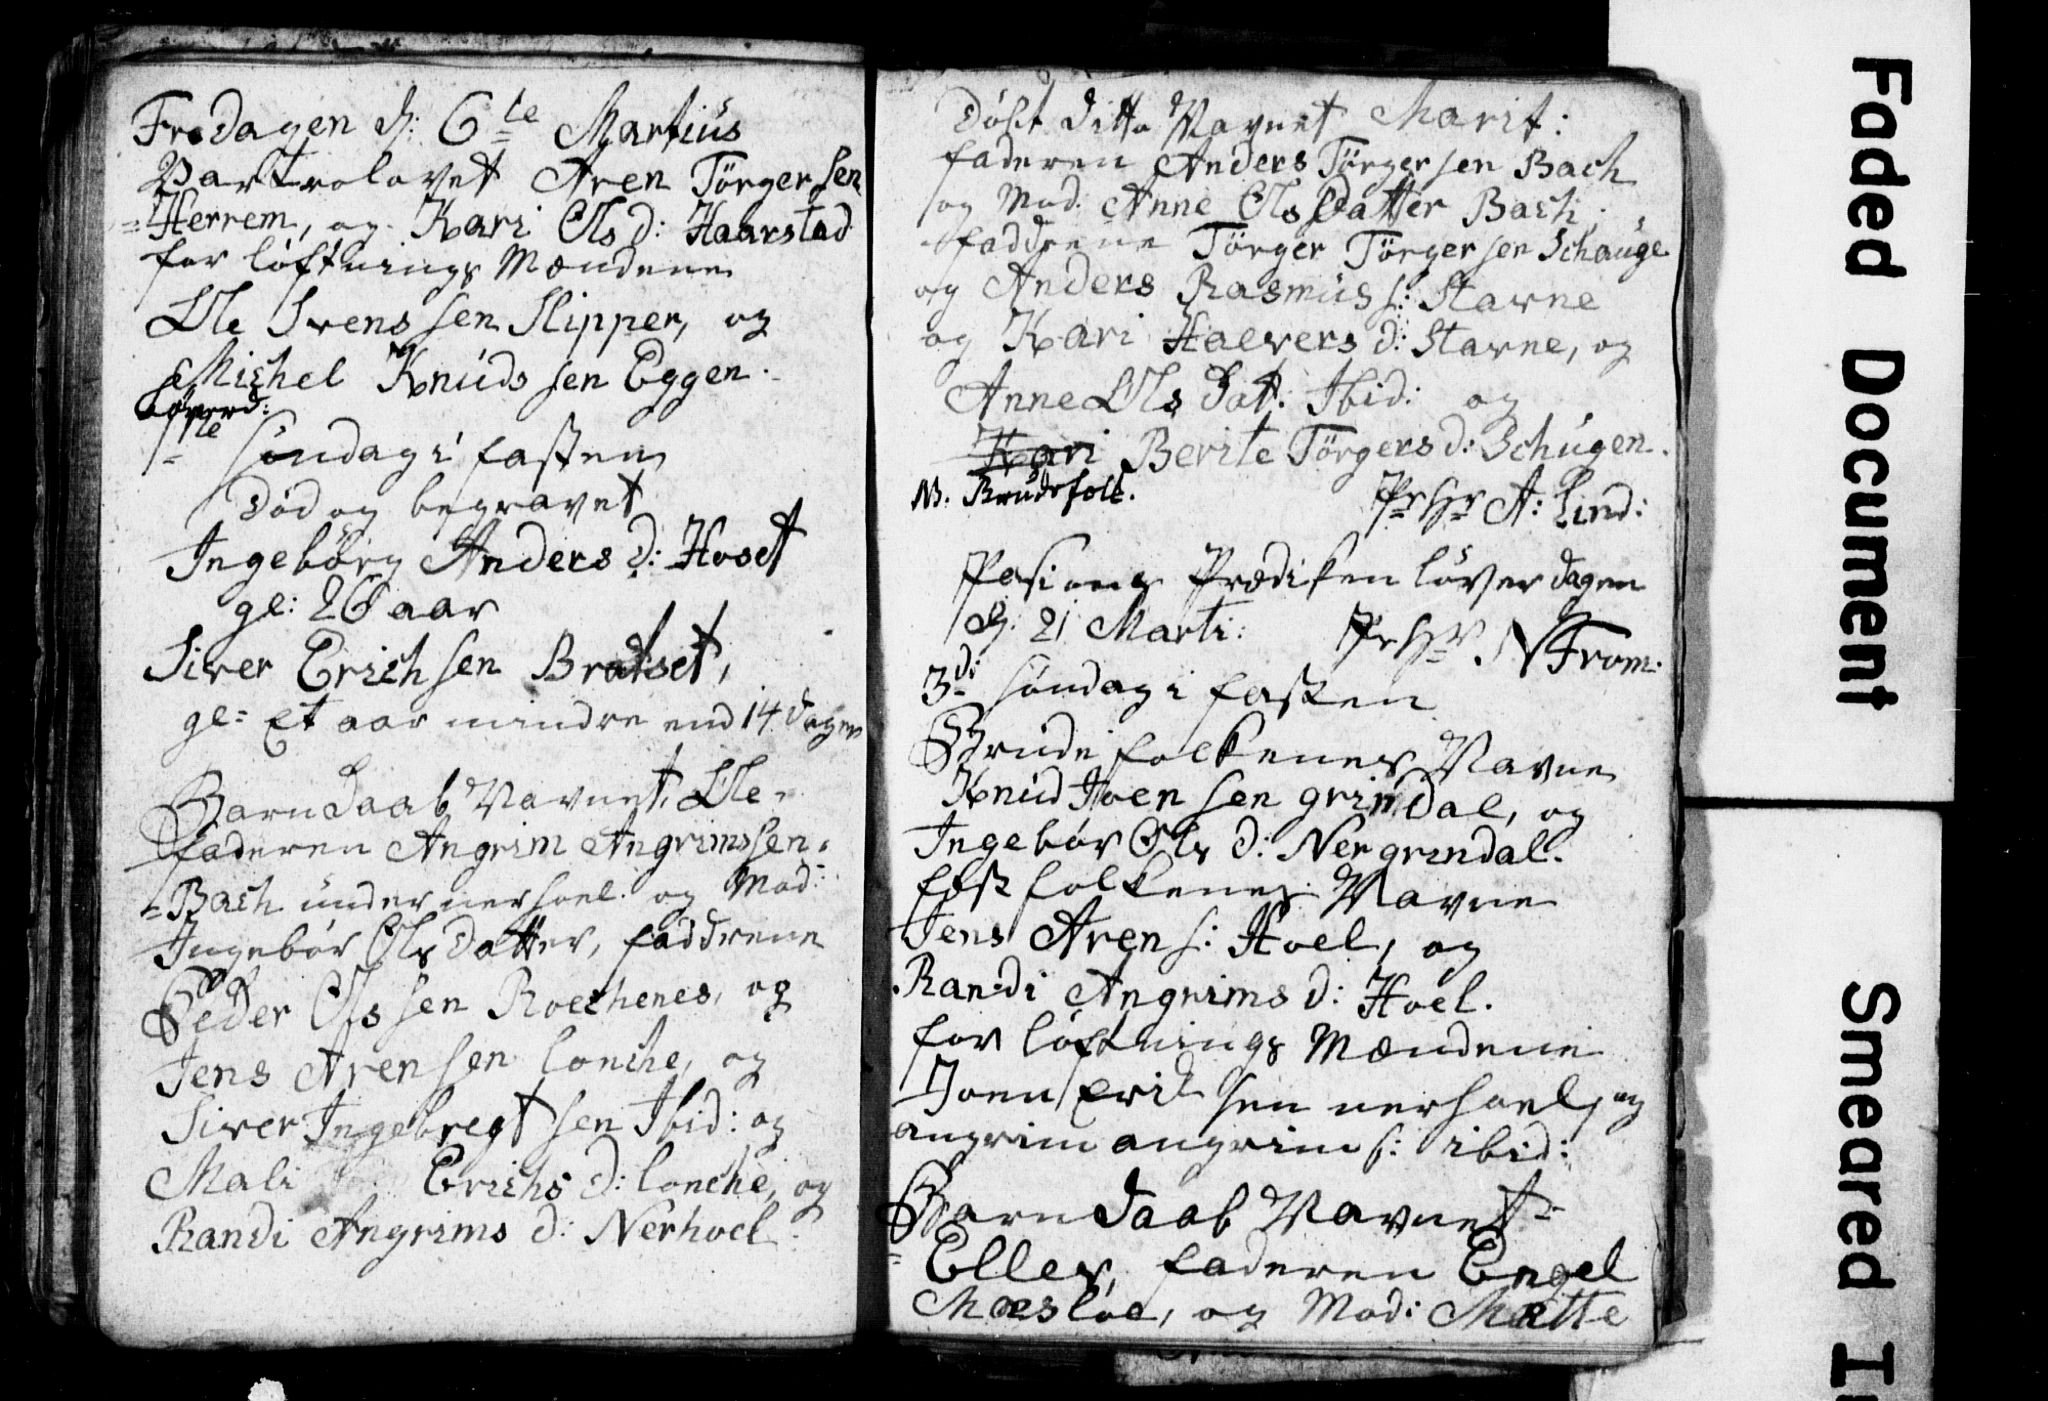 Fredagen d: 6te Martius
Vart trolovet Aren Törgersen
Herrem, og Kari Ols d: Haarstad
for löftnings Mændene
Ole Svens sen Slipper, og
Michel Knuds sen Eggen.
1te Söndag i fasten
död og begravet
Ingebörg Anders d: Hoset
gl: 26 aar
Siver Erichsen Bratset,
gl: Et aar mindre end 14 dager
Barn daab Navnet, Ole
faderen Angrim Angrimssen
Bach under nerhoel og Mod:
Ingebör Ols datter, faddrene
Peder Ols sen Roechenes, og
Jens Arensen lonche, og
Siver Ingebregt sen Ibid: og
Mali Erichs d: lonche, og
Randi Angrims d: Nerhoel
döbt ditto Navnet Marit:
faderen Anders Törgersen Bach
og Mod. Anne Olsdatter Bach
faddrene Törger Törgersen Schauge
og Anders Rasmus s: Stavne
og Kari Haevers d: Stavne, og
Anne Ols dat. Ibid: og
Kari Berite Törgers d: Schugen.
N. Brudefolk.
Pr Hr A: Lind:
Pasions Prædiken löverdagen
d: 21 Marti: Pr Hr N From:
3di Söndag i fasten
Brudefolkenes Navne
Knud Joensen grindal, og
Ingebör Ols d: Nergrindal.
fæstfolkenes Navne
Jens Aren s: Hoel, og
Randi Angrims d: Hoel.
for löftnings Mændene
Joen Erik sen nerhoel, og
angrim angrim s: ibid:
Barn daab Navnet
Elles, faderen Engel
Mæsloe, og Mod: Mætte
Faded Document
Smeared I